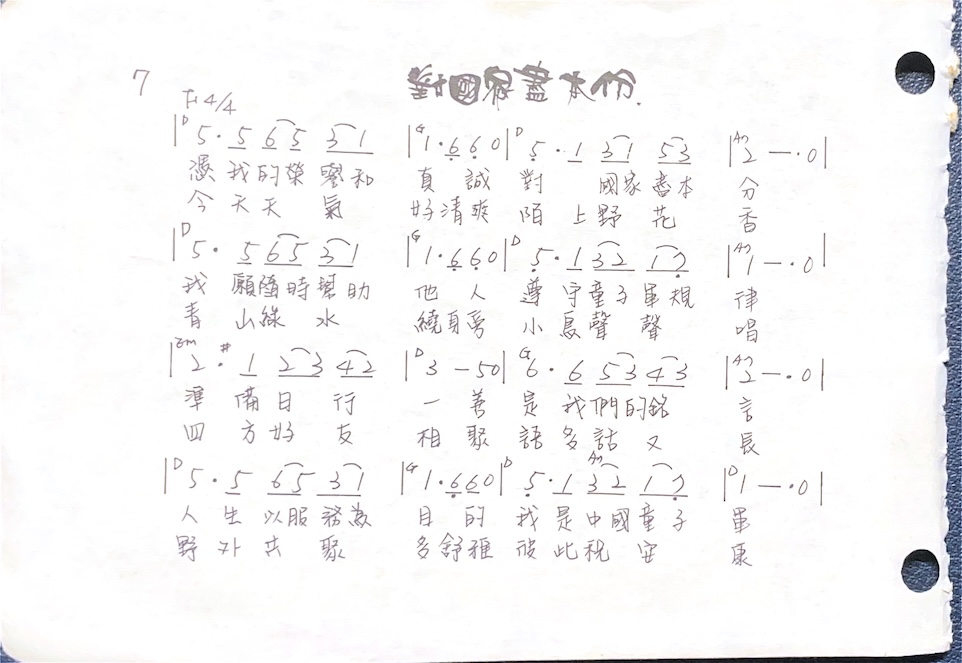 7
對國家盡本份.
F 4/4
|D 5 · 5 6 5 3 1 |G 1 · 6 6 0 |D 5 · 1 3 1 5 3 |A7 2 — · 0 |
憑我的榮譽和 真誠 對 國家盡本 分
今天天氣 好清爽 陌上野花 香
|D 5 · 5 6 5 3 1 |G 1 · 6 6 0 |D 5 · 1 3 2 1 7 |A7 1 — · 0 |
我 願隨時幫助 他人 遵守童子軍規 律
青 山綠水 繞身旁 小鳥聲聲 唱
|Em 2 · #1 2 3 4 2 |D 3 — 5 0 |G 6 · 6 5 3 4 3 |A7 2 — · 0 |
準備日行 一善 是我們的銘 言
四方好友 相聚 語多話又 長
|D 5 · 5 6 5 3 1 |G 1 · 6 6 0 |D 5 · 1 A7 3 2 1 7 |D 1 — · 0 |
人生以服務為 目的 我是中國童子 軍
野外共聚 多舒雅 彼此祝安 康